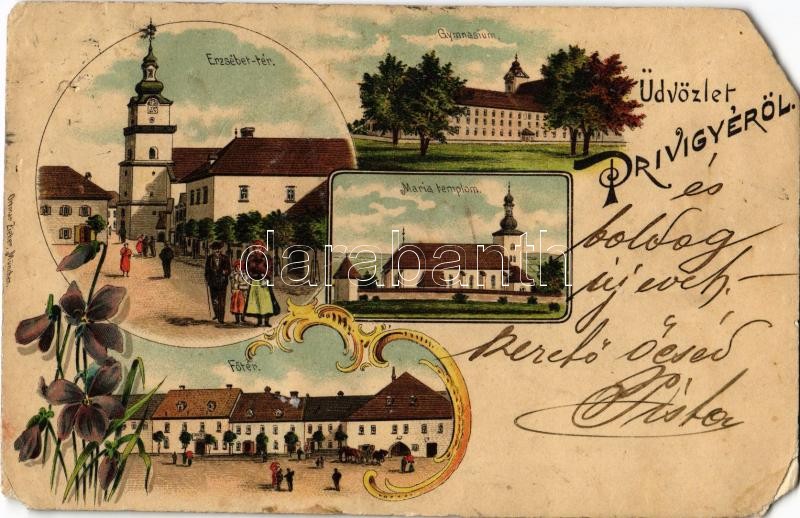 Erzsébet-tér.
Gymnasium.
Üdvözlet
PRIVIGYÉRÖL.
Maria templom.
Főtér.
és
boldog
új évet
szerető öcséd
Pista
darabanth